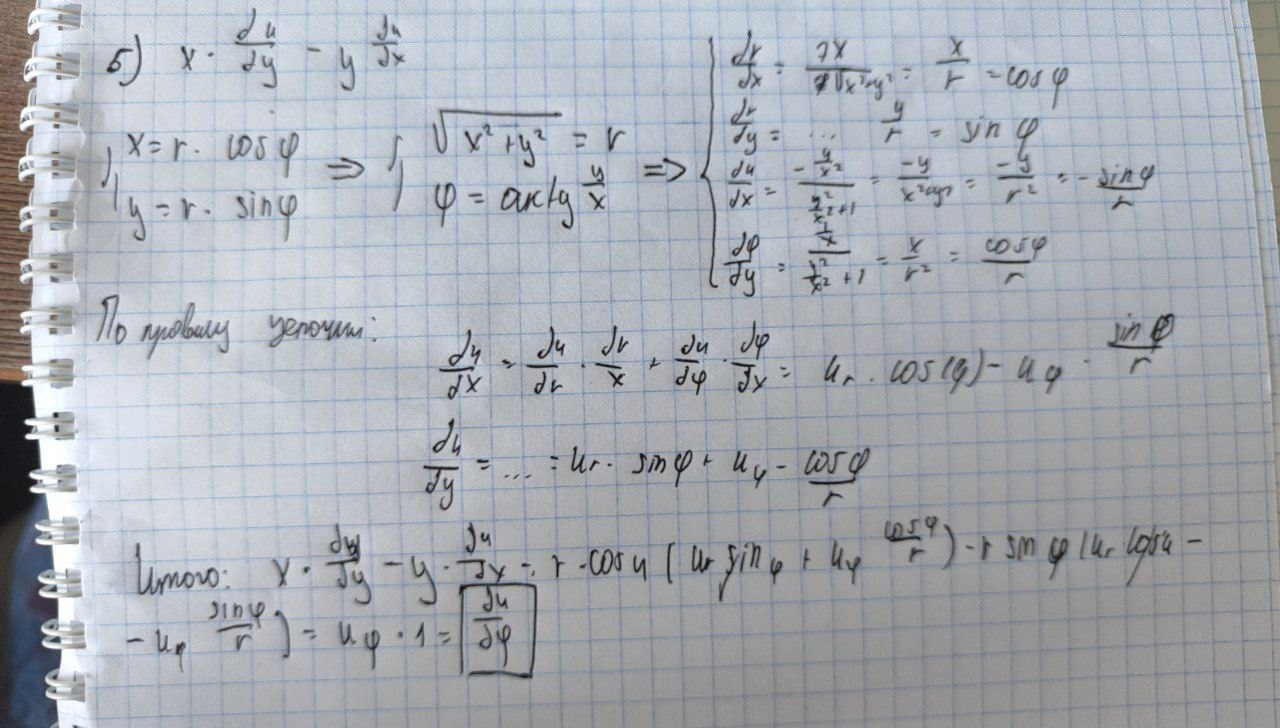 б) x · ∂u/∂y − y ∂u/∂x
{ x = r · cosφ
y = r · sinφ
=> { √(x²+y²) = r
φ = arctg y/x
=> { ∂r/∂x = 2x/(2√(x²+y²)) = x/r = cosφ
∂r/∂y = ... y/r = sin φ
∂u/∂x = (−y/x²)/(y²/x²+1) = −y/(x²+y²) = −y/r² = − sinφ/r
∂φ/∂y = (1/x)/(y²/x²+1) = x/r² = cosφ/r
По правилу цепочки:
∂u/∂x = ∂u/∂r · ∂r/x + ∂u/∂φ · ∂φ/∂x = u_r · cos(φ) − u_φ · sin φ/r
∂u/∂y = ... = u_r · sinφ + u_φ · cosφ/r
Итого: x · ∂u/∂y − y · ∂u/∂x = r · cosφ ( u_r sinφ + u_φ cosφ/r ) − r sin φ (u_r cosφ −
− u_φ sinφ/r ) = u_φ · 1 = ∂u/∂φ